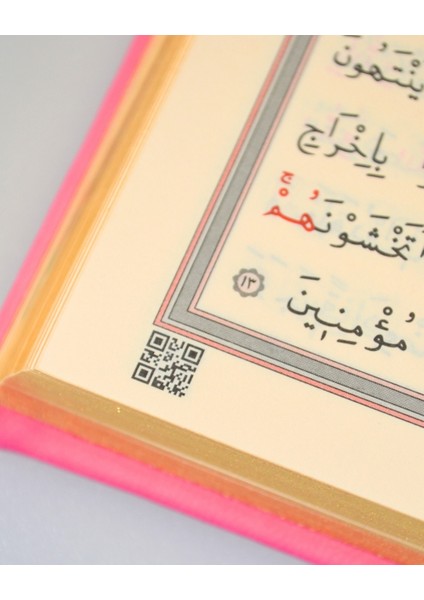 يَنْتَهُونَ
بِاِخْرَاجِ
اَتَخْشَوْنَهُمْ ۚ
مُؤْمِنِينَ ١٣